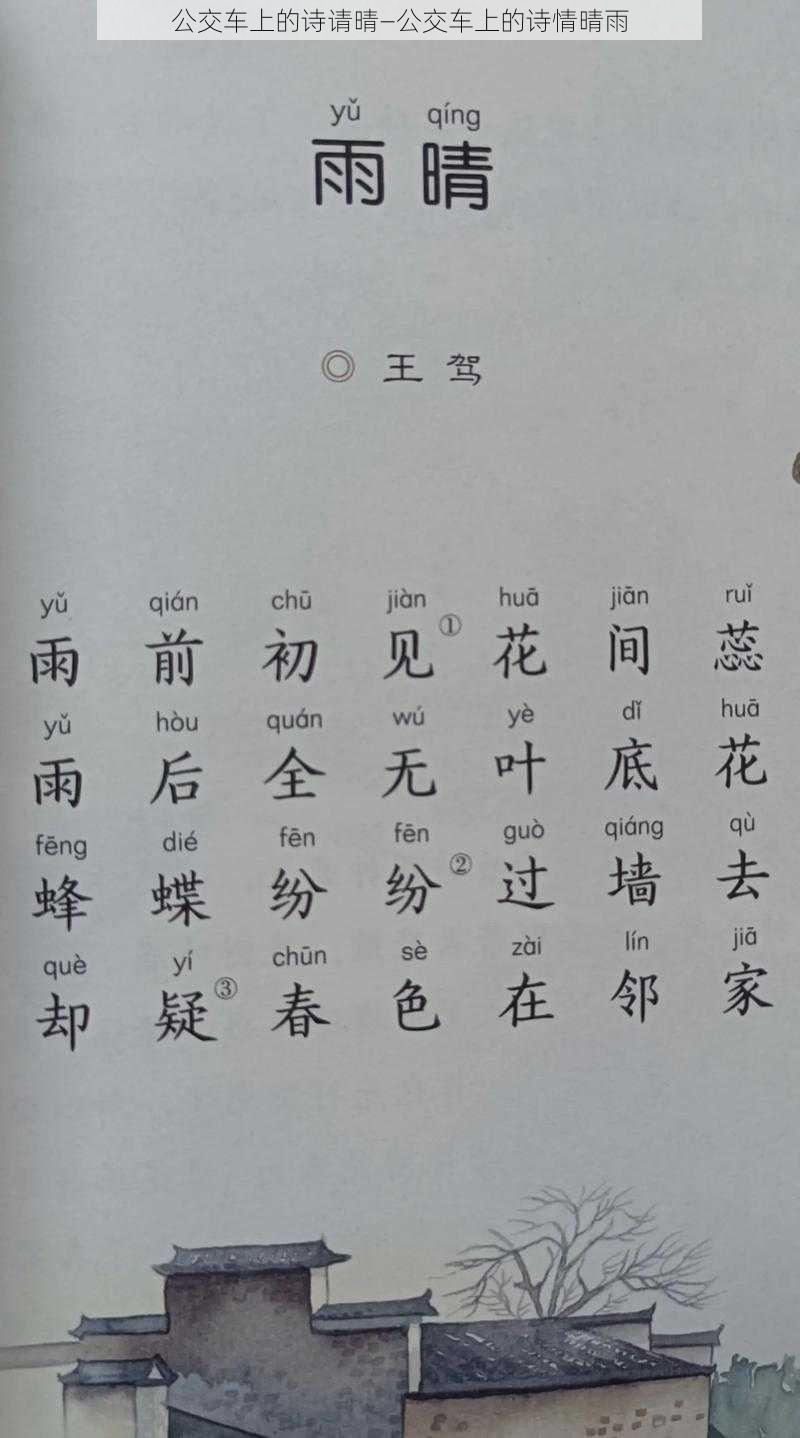 公交车上的诗请晴–公交车上的诗情晴雨
yǔ qíng
雨 晴
◎ 王 驾
yǔ qián chū jiàn huā jiān ruǐ
雨 前 初 见① 花 间 蕊
yǔ hòu quán wú yè dǐ huā
雨 后 全 无 叶 底 花
fēng dié fēn fēn guò qiáng qù
蜂 蝶 纷 纷② 过 墙 去
què yí chūn sè zài lín jiā
却 疑③ 春 色 在 邻 家